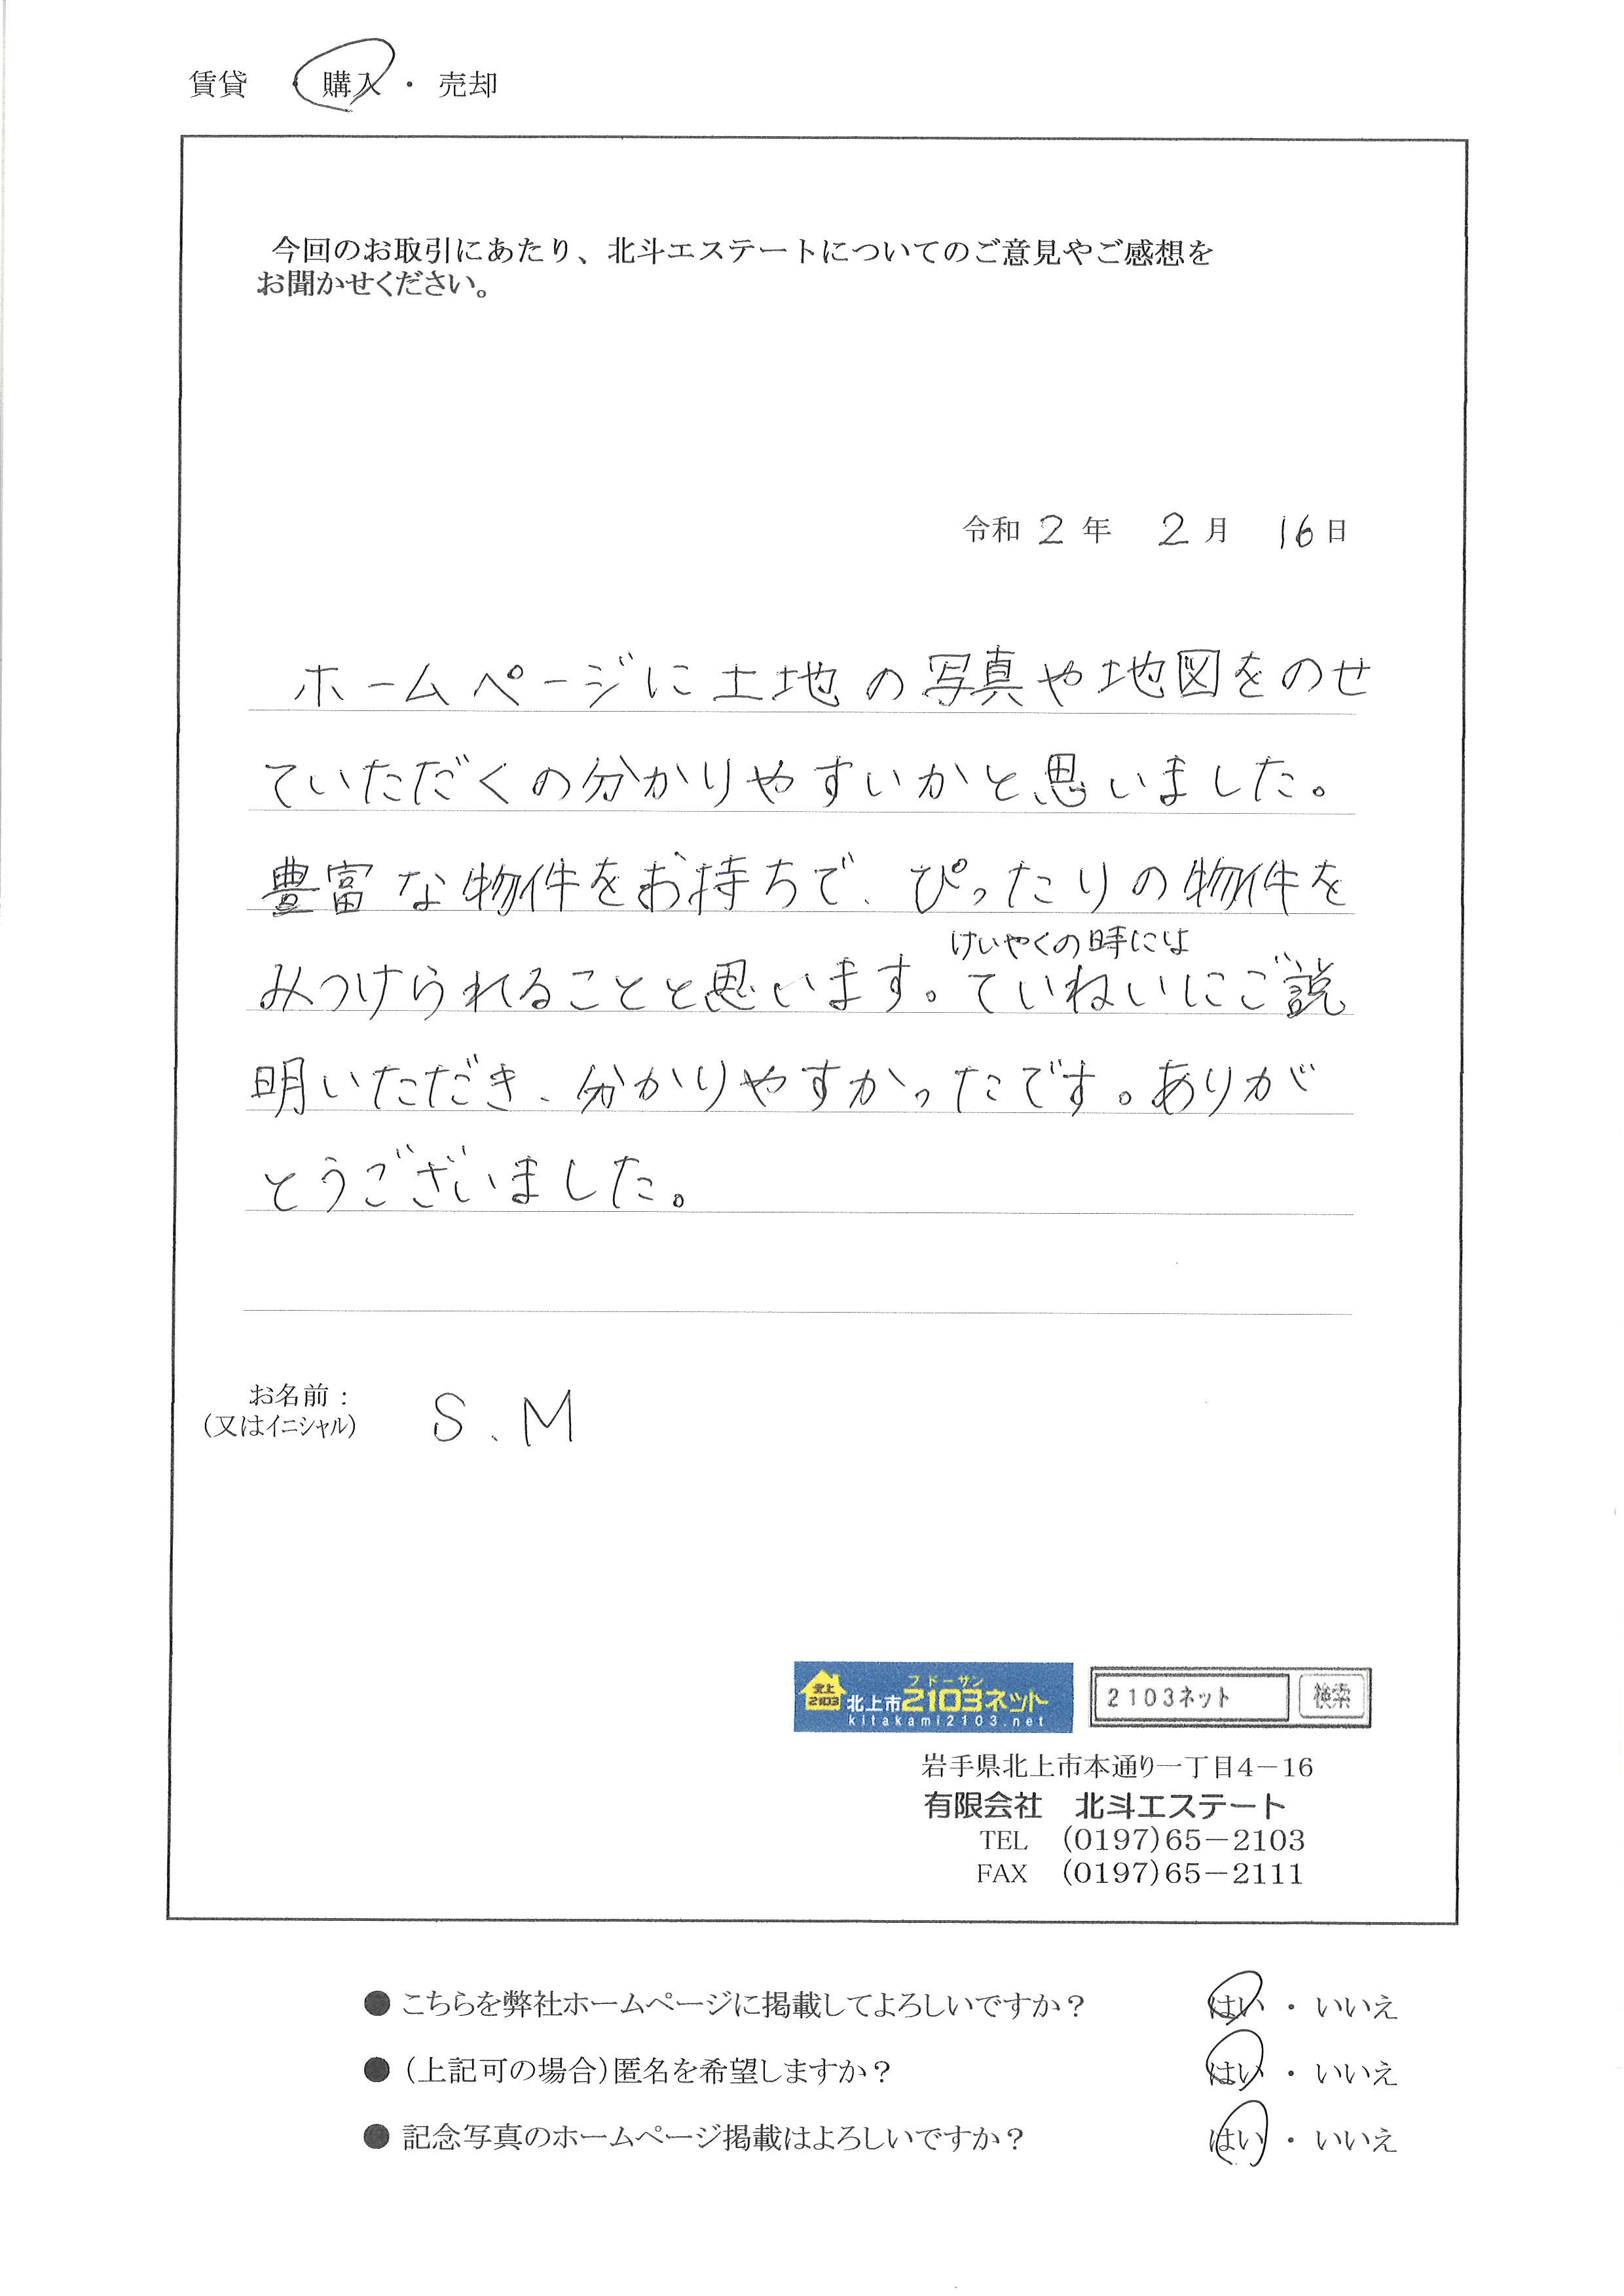 賃貸 ・ 購入 ・ 売却
今回のお取引にあたり、北斗エステートについてのご意見やご感想を
お聞かせください。
令和 2 年 2 月 16 日
ホームページに土地の写真や地図をのせ
ていただくの分かりやすいかと思いました。
豊富な物件をお持ちで、ぴったりの物件を
けいやくの時には
みつけられることと思います。ていねいにご説
明いただき、分かりやすかったです。ありが
とうございました。
お名前：
（又はイニシャル） S.M
北上 2103 北上市2103ネット ブドーサン
kitakami2103.net
2103ネット 検索
岩手県北上市本通り一丁目4－16
有限会社 北斗エステート
TEL （0197）65－2103
FAX （0197）65－2111
● こちらを弊社ホームページに掲載してよろしいですか？ はい ・ いいえ
● （上記可の場合）匿名を希望しますか？ はい ・ いいえ
● 記念写真のホームページ掲載はよろしいですか？ はい ・ いいえ